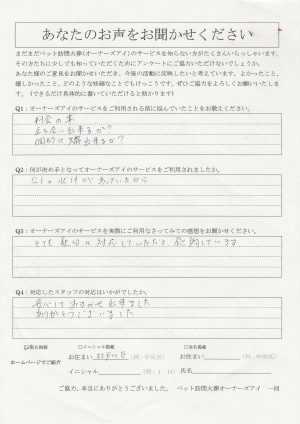 あなたのお声をお聞かせください
まだまだペット訪問火葬(オーナーズアイ)のサービスを知らない方がたくさんいらっしゃいます。
その方たちに少しでも知っていただくためにアンケートにご協力いただけないでしょうか。
あなた様のご意見をお聞かせいただき、今後の活動に反映したいと考えています。よかったこと、
嬉しかったこと、どのような些細なことでもけっこうです。ぜひご協力をよろしくお願いいたしま
す。(できるだけ具体的に書いていただけると助かります)
Q1:オーナーズアイのサービスをご利用される前に悩んでいたことをお教えください。
料金の事
立ち会い出来るか?
個別に火葬出来るか?
Q2:何が決め手となってオーナーズアイのサービスをご利用されましたか。
Q1の状件があっていたから
Q3:オーナーズアイのサービスを実際にご利用なさってみての感想をお聞かせください。
とても親切に対応していただき感謝しています
Q4:対応したスタッフの対応はいかがでしたか。
安心しておまかせ出来ました
ありがとうございました
匿名掲載 □イニシャル掲載 □実名掲載
お住まい (例:中央区) お住まい (例:中央区)
ホームページでご紹介
イニシャル (例:J.H) 氏名
ご協力、本当にありがとうございました。 ペット訪問火葬オーナーズアイ 一同